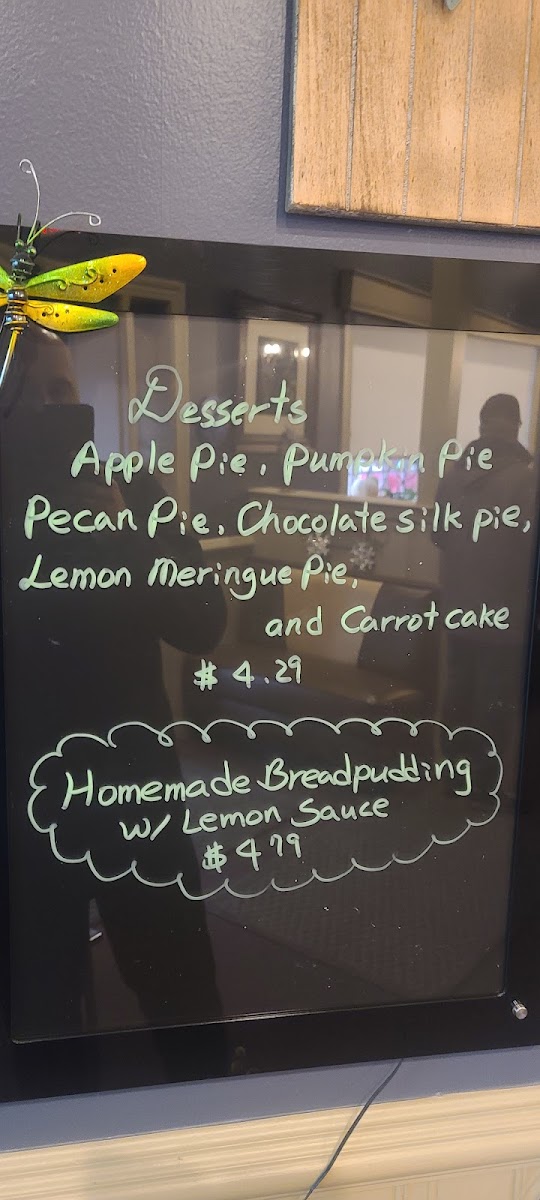 Desserts
Apple Pie, Pumpkin Pie
Pecan Pie, Chocolate silk pie,
Lemon Meringue Pie,
and Carrot cake
$ 4.29
Homemade Breadpudding
w/ Lemon Sauce
$ 4 79